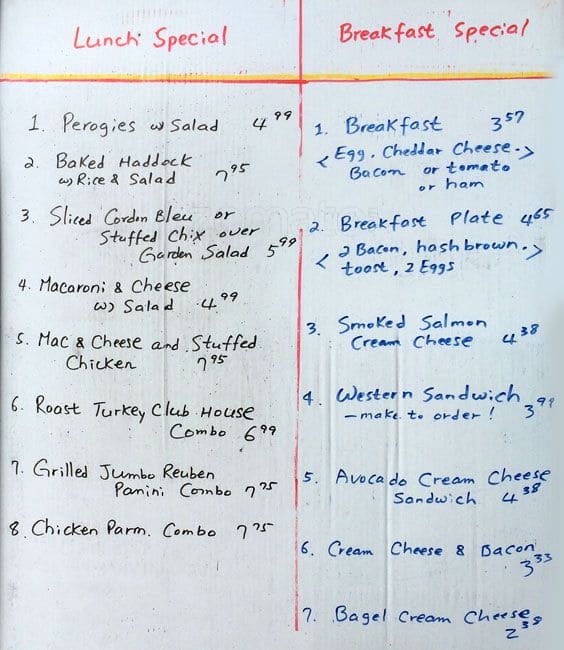 Lunch Special
1. Perogies w/ Salad 4 99
2. Baked Haddock
w/ Rice & Salad 7 95
3. Sliced Cordon Bleu or
Stuffed Chix over
Garden Salad 5 99
4. Macaroni & Cheese
w/ Salad 4 99
5. Mac & Cheese and Stuffed
Chicken 7 95
6. Roast Turkey Club House
Combo 6 99
7. Grilled Jumbo Reuben
Panini Combo 7 75
8. Chicken Parm. Combo 7 75
Breakfast Special
1. Breakfast 3 57
< Egg, Cheddar Cheese. >
Bacon or tomato
or ham
2. Breakfast Plate 4 65
< 2 Bacon, hash brown. >
toost, 2 Eggs
3. Smoked Salmon
Cream Cheese 4 38
4. Western Sandwich
– make to order! 3 99
5. Avocado Cream Cheese
Sandwich 4 38
6. Cream Cheese & Bacon
3 33
7. Bagel Cream Cheese
2 38